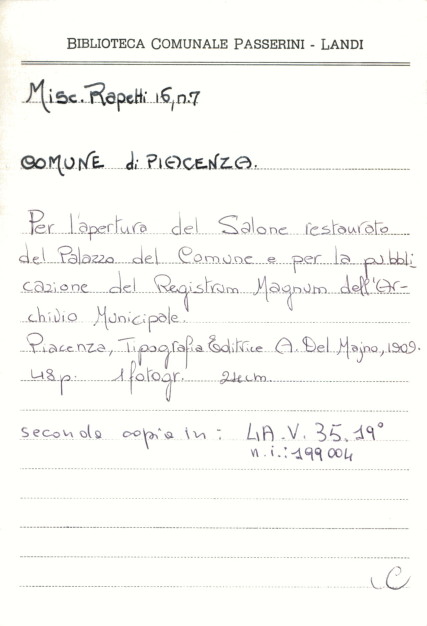 BIBLIOTECA COMUNALE PASSERINI - LANDI
Misc. Rapetti 16, n.7
COMUNE di PIACENZA.
Per l'apertura del Salone restaurato
del Palazzo del Comune e per la pubbli
cazione del Registrum Magnum dell'Ar-
chivio Municipale.
Piacenza, Tipografia Editrice A. Del Majno, 1909.
48 p. 1 fotogr. 24 cm.
seconda copia in: 4A.V. 35.19°
n.i.: 199004
C